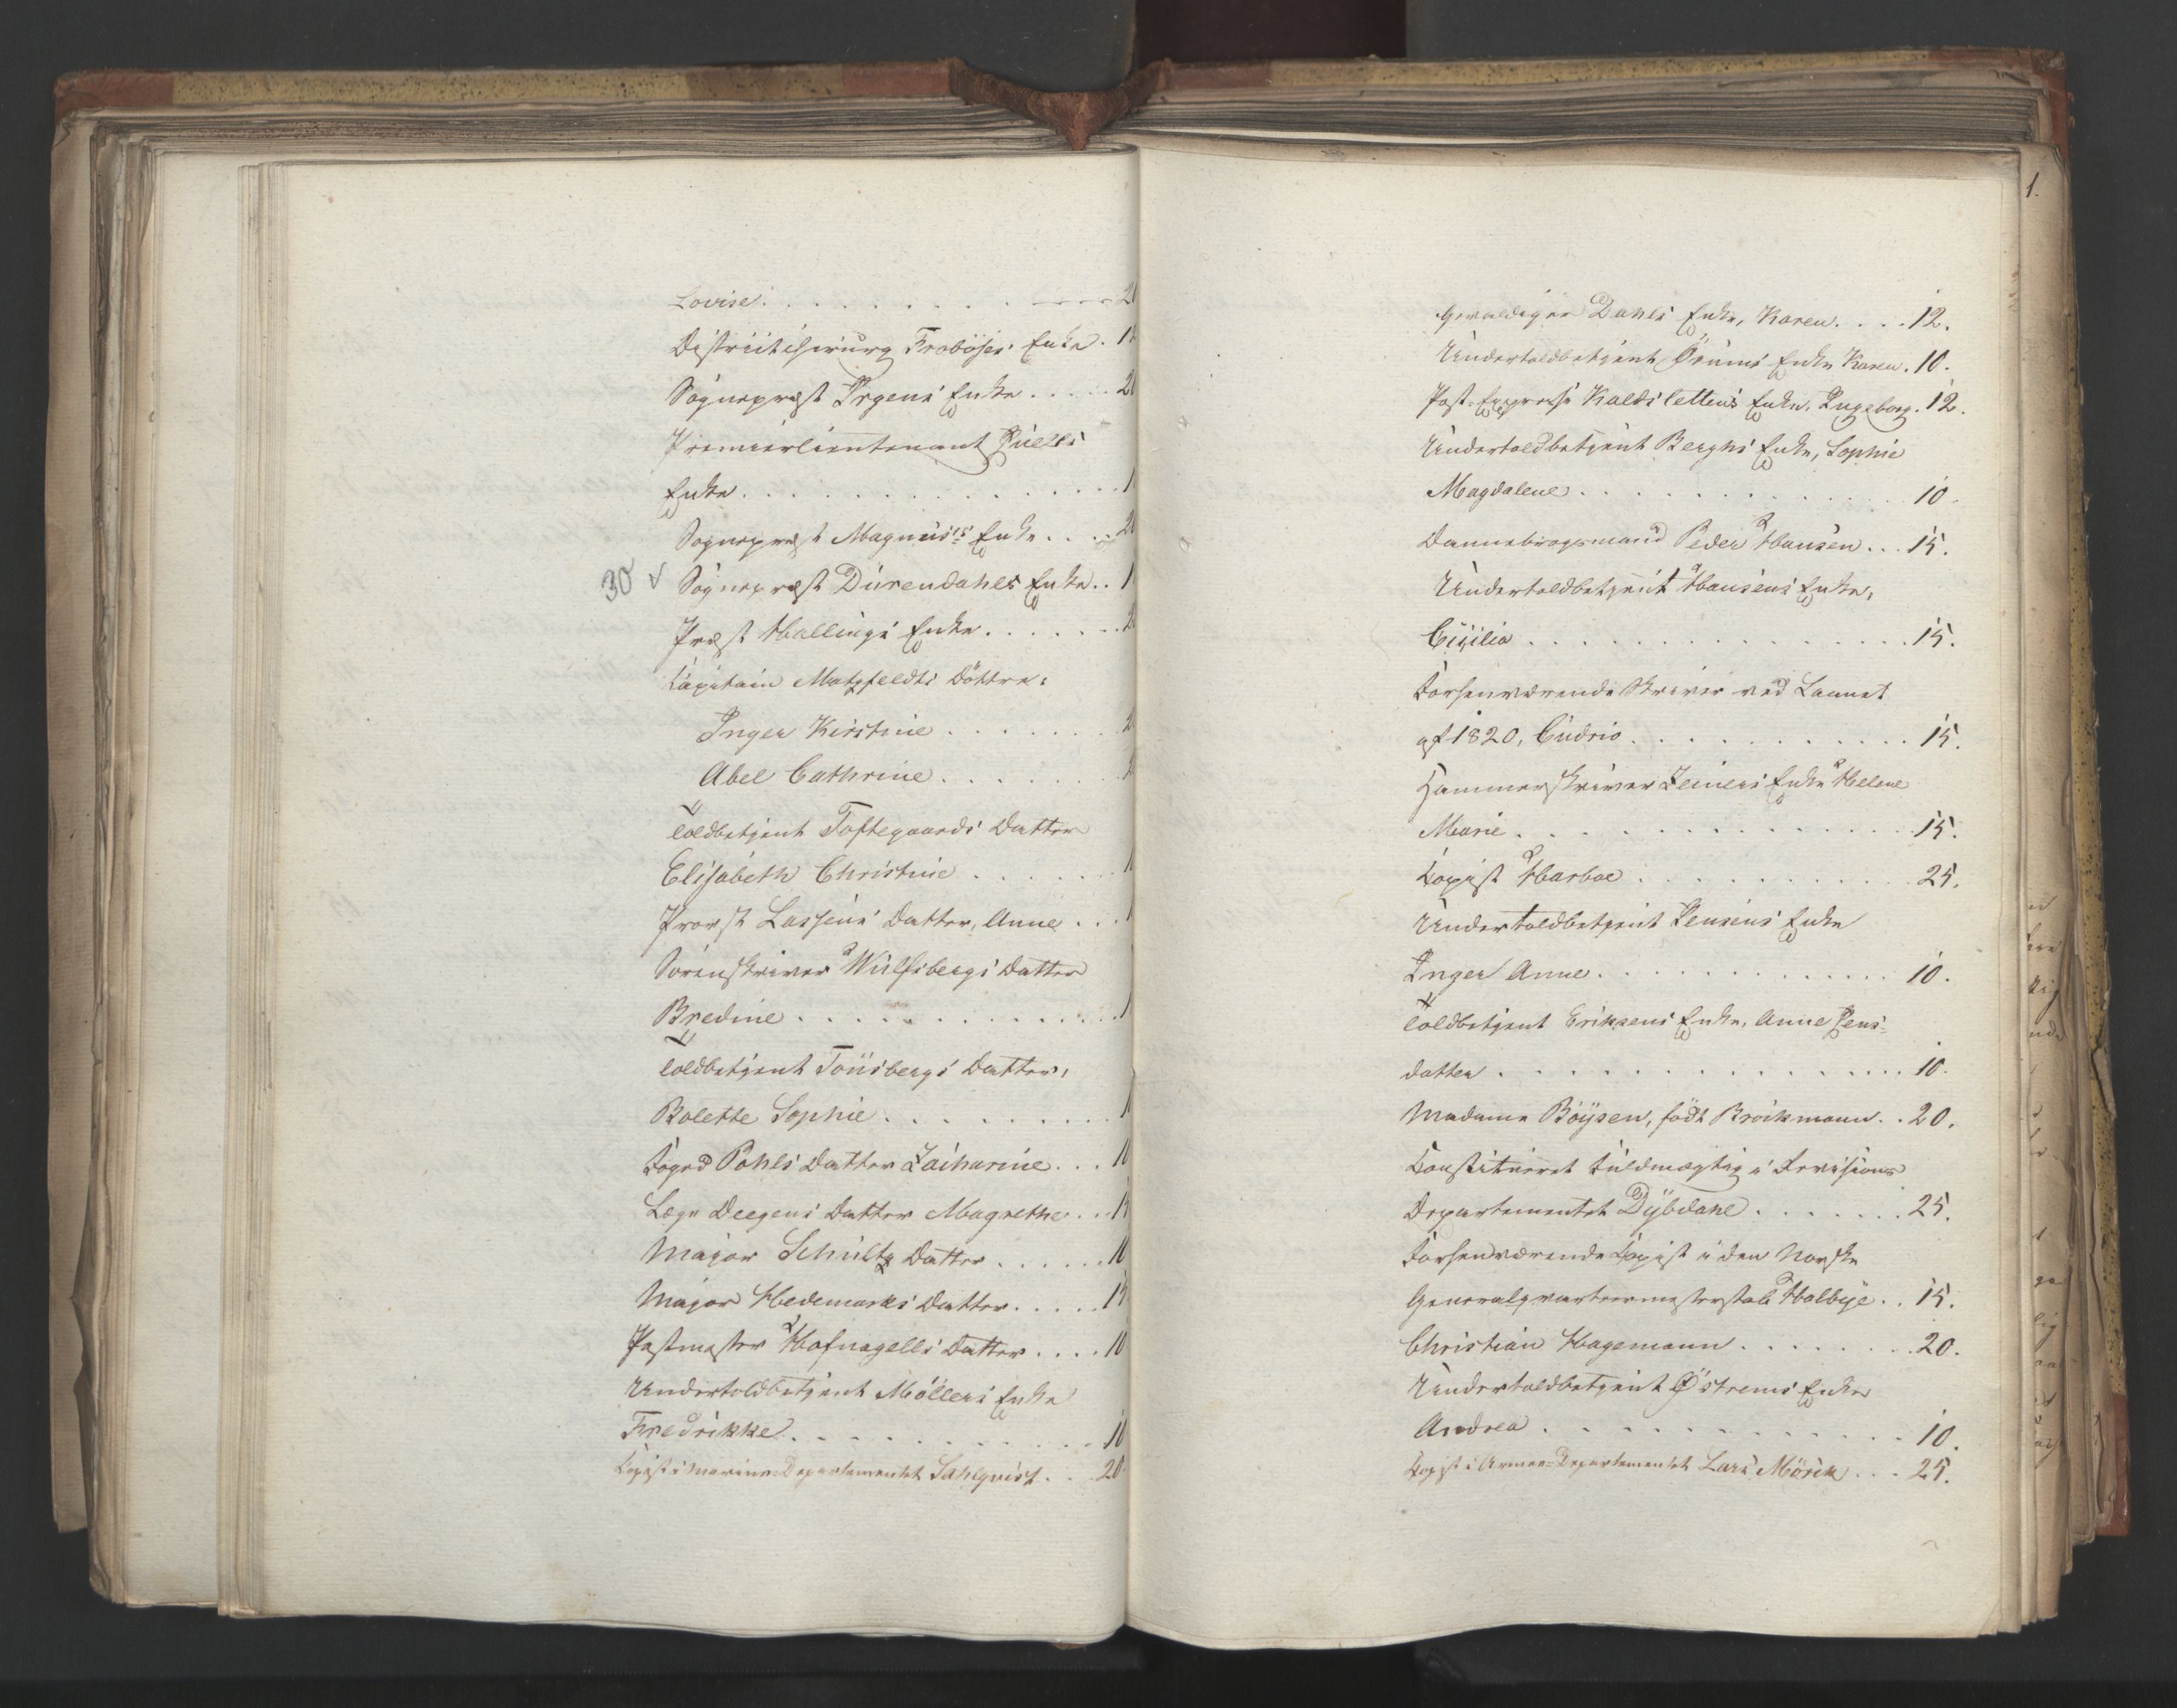 Lovise . . . . . . . . . 2
Districtschirurg Froböses Enke . 1
Sognepræst Irgens Enke . . . . . 20
Premierlieutenant Juells
Enke . . . . . . . . . . . . . . 1
Sognepræst Magnus's Enke . . . . 20
30 ✓ Sognepræst Dürendahls Enke . . 1
Præst Hallings Enke . . . . . . . 2
Capitain Matzfeldts Döttre:
Inger Kirstine . . . . . . . 2
Abel Cathrine . . . . . . .
Toldbetjent Toftegaards Datter
Elisabeth Christine . . . . . . 1
Provst Lassens Datter, Anne . . . 1
Sorenskriver Wulfsbergs Datter
Bredine . . . . . . . . . . . . . 1
Toldbetjent Tönsbergs Datter,
Bolette Sophie . . . . . . . . . 1
Foged Pohls Datter Zacharine . . . 10
Læge Deegens Datter Magrethe . . . 15
Major Schultz Datter . . . . . . 10
Major Hedemarks Datter . . . . . 15
Postmester Hofnagells Datter . . . . 10
Undertoldbetjent Möllers Enke
Fredrikke . . . . . . . . . . . 10
Copist i Marine-Departementet Sahlqvist . . . 20.
1.
Gevaldiger Dahls Enke, Karen . . . . 12.
Undertoldbetjent Örums Enke Karen . 10.
Post-Expresse Kaldslettens Enke, Ingeborg . 12.
Undertoldbetjent Berghs Enke, Sophie
Magdalene . . . . . . . . . . . 10.
Dannebrogsmand Peder Hansen . . . 15.
Undertoldbetjent Hansens Enke,
Cicilia . . . . . . . . . . . . 15.
Forhenværende Skriver ved Laanet
af 1820, Cudrio . . . . . . . . . 15.
Hammerskriver Zeiners Enke Helene
Marie . . . . . . . . . . . . . . 15.
Copist Harboe . . . . . . . . . . 25.
Undertoldbetjent Jensens Enke
Inger Anne . . . . . . . . . . . 10.
Toldbetjent Eriksens Enke, Anne Jens-
datter . . . . . . . . . . . . . 10.
Madame Böysen, födt Bröckmann . . 20.
Constitueret Fuldmægtig i Revisions
Departementet Dybdahl . . . . . . . 25.
Forhenværende Copist i den Norske
Generalqvarteermesterstab Holbye . . 15.
Christian Hagemann . . . . . . . . 20.
Undertoldbetjent Östrems Enke
Andrea . . . . . . . . . . . . . 10.
Copist i Armee-Departementet Lars Mörck . . . 25.